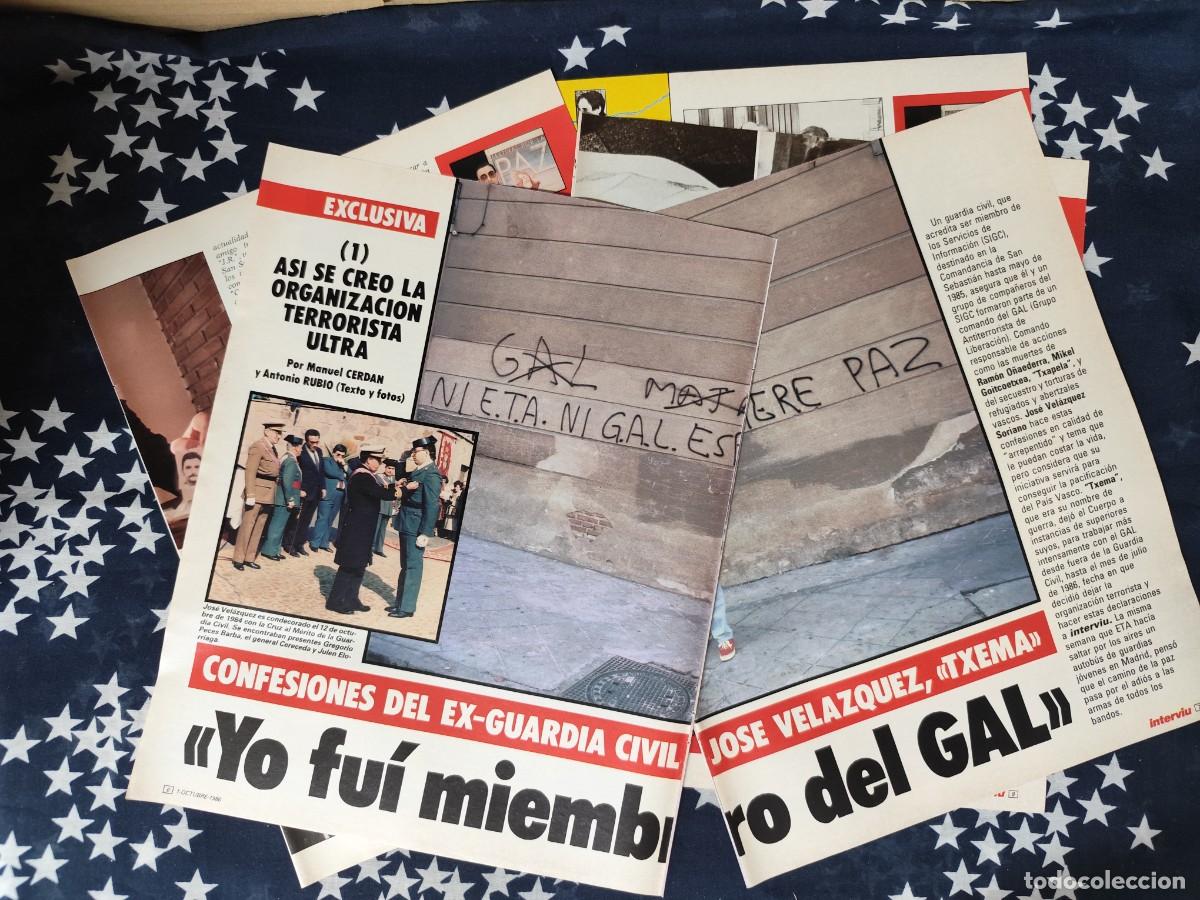 EXCLUSIVA
(1)
ASI SE CREO LA
ORGANIZACION
TERRORISTA
ULTRA
Por Manuel CERDAN
y Antonio RUBIO (Texto y fotos)
GAL
NI E.T.A. NI G.A.L. ES
ERE PAZ
José Velázquez es condecorado el 12 de octu-
bre de 1984 con la Cruz al Mérito de la Guar-
dia Civil. Se encontraban presentes Gregorio
Peces Barba, el general Cereceda y Julen Elo-
rriaga.
CONFESIONES DEL EX-GUARDIA CIVIL
JOSE VELAZQUEZ, «TXEMA»
«Yo fuí miemb
ro del GAL»
1-OCTUBRE-1986
Un guardia civil, que
acredita ser miembro de
los Servicios de
Información (SIGC),
destinado en la
Comandancia de San
Sebastián hasta mayo de
1985, asegura que él y un
grupo de compañeros del
SIGC formaron parte de un
comando del GAL (Grupo
Antiterrorista de
Liberación). Comando
responsable de acciones
como las muertes de
Ramón Oñaederra, Mikel
Goitcoetxea, "Txapela", y
del secuestro y torturas de
refugiados y abertzales
vascos. José Velázquez
Soriano hace estas
confesiones en calidad de
"arrepentido" y teme que
le puedan costar la vida,
pero considera que su
iniciativa servirá para
conseguir la pacificación
del País Vasco. "Txema",
que era su nombre de
guerra, dejó el Cuerpo a
instancias de superiores
suyos, para trabajar más
intensamente con el GAL
desde fuera de la Guardia
Civil, hasta el mes de julio
de 1986, fecha en que
decidió dejar la
organización terrorista y
hacer estas declaraciones
a interviu. La misma
semana que ETA hacía
saltar por los aires un
autobús de guardias
jóvenes en Madrid, pensó
que el camino de la paz
pasa por el adiós a las
armas de todos los
bandos.
interviu
PAZ
actualidad
amigo
San S
todocoleccion